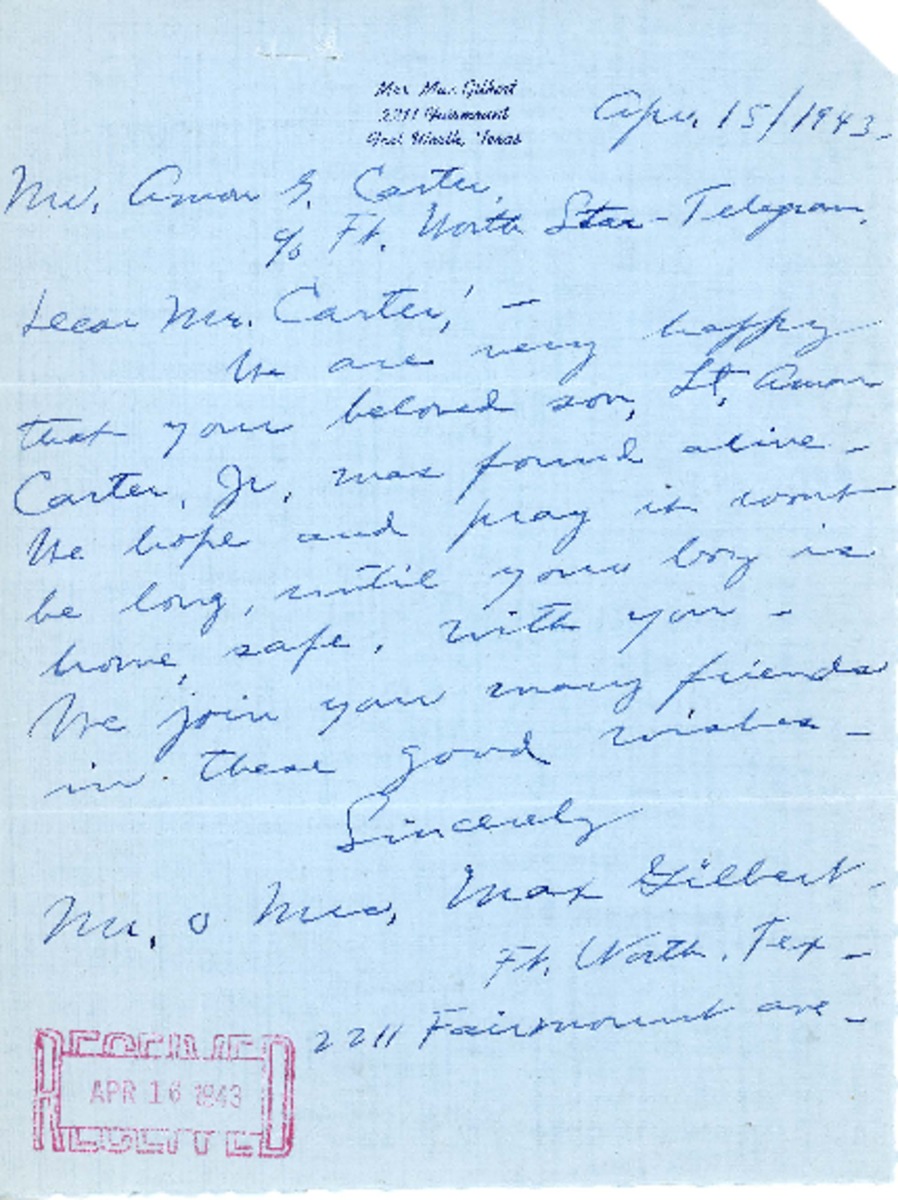 Mrs Max Gilbert
2211 Fairmount
Fort Worth, Texas
Apr. 15/1943.
Mr. Amon G. Carter,
c/o Ft. Worth Star-Telegram.
Dear Mr. Carter; -
We are very happy
that your beloved son, Lt. Amon
Carter, Jr. was found alive -
We hope and pray it wont
be long, until your boy is
home, safe, with you -
We join your many friends
in these good wishes -
Sincerely
Mr. & Mrs. Max Gilbert.
Ft. Worth, Tex -
2211 Fairmount ave -
RECEIVED
APR 16 1943